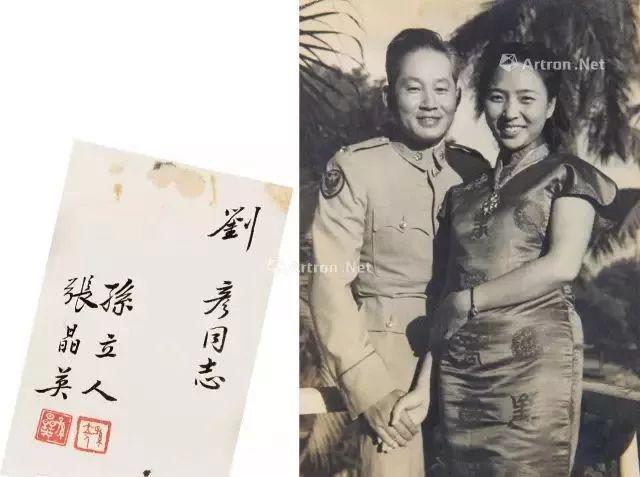 劉彥同志
孫立人
張晶英
Artron.Net
Artron.Net